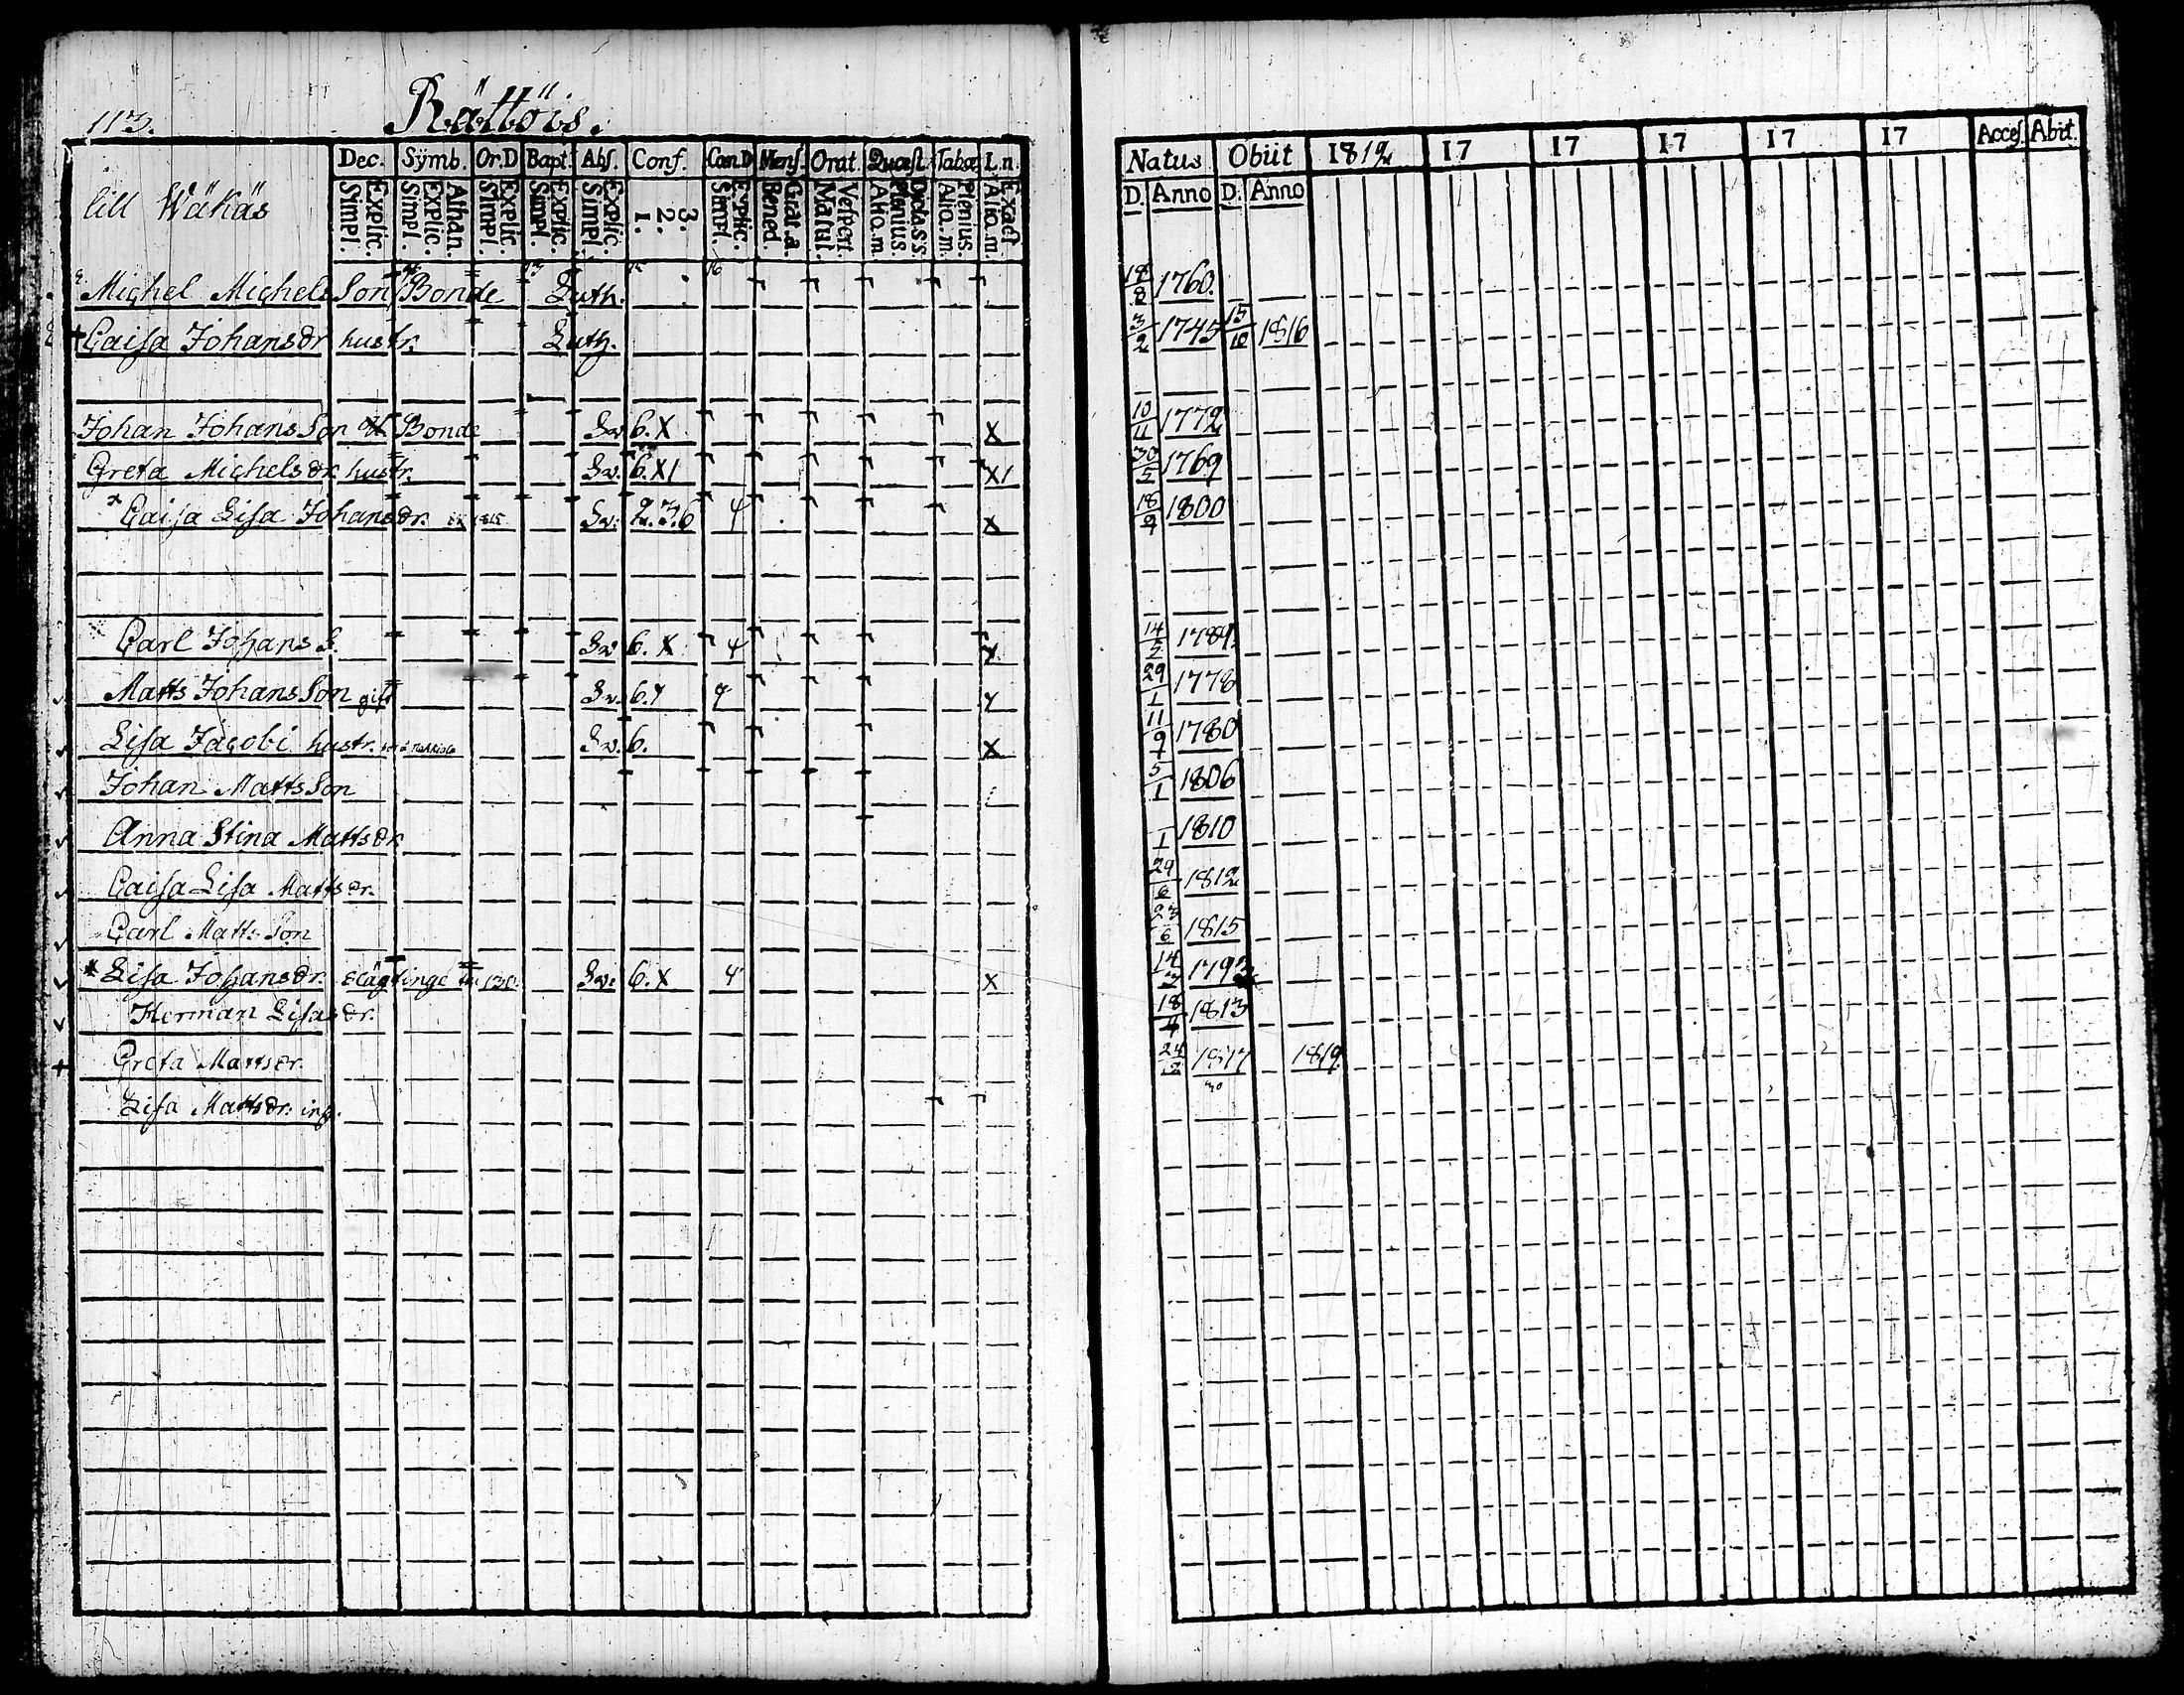 113. Rättöis.
lill Wäkäs
Dec. Sÿmb. Or.D Bapt. Abs. Conf. Cœn.D Mens. Orat. Quæst. Tabœ. L.n.
Explic. Simpl. Athan. Explic. Simpl. Explic. Simpl. Explic. Simpl. Explic. Simpl. 3. 2. 1. Explic. Simpl. Grat.a. Bened. Vespert. Matut. Plenius. Alio.m. Plenius. Alio.m. Exact Alio.m.
Natus Obiit 1812 17 17 17 17 17 Acces. Abiit.
D. Anno D. Anno
Michel Michels Son Bonde Luth. 18/8 1760.
+ Caisa Johansdr hustr. Luth. 3/2 1745 15/10 1816
Johan Johans Son Bonde Sv. 6.X X 10/11 1772
Greta Michelsdr. hustr. Sv. 6.X1 X1 30/5 1769
Caisa Lisa Johansdr. Sv. 2.3.6 4 X 18/9 1800
Carl Johans S. Sv. 6. X 4 X 14/2 1784.
Matts Johans Son gift Sv. 6.7 4 29/1 1778
Lisa Jacobi hustr. Sv. 6. X 11/9 1780
Johan Matts Son 5/1 1806
Anna Stina Mattsdr. 1 1810
Caisa Lisa Mattsdr. 29/6 1812
Carl Matts Son 23/6 1815
* Lisa Johansdr. Slägtinge Sv. 6.X 4 X 14
Herman Lisasdr. 18 1813
+ Greta Mattsdr. 24/2 1817 1819.
Lisa Mattsdr. inh.